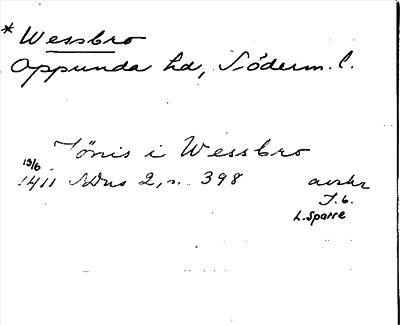 * Wessbro
Oppunda hd, Söderm. l.
Jönis i Wessbro
19/6
1411 SDns 2, s. 398
avskr
J. G.
L. Sparre